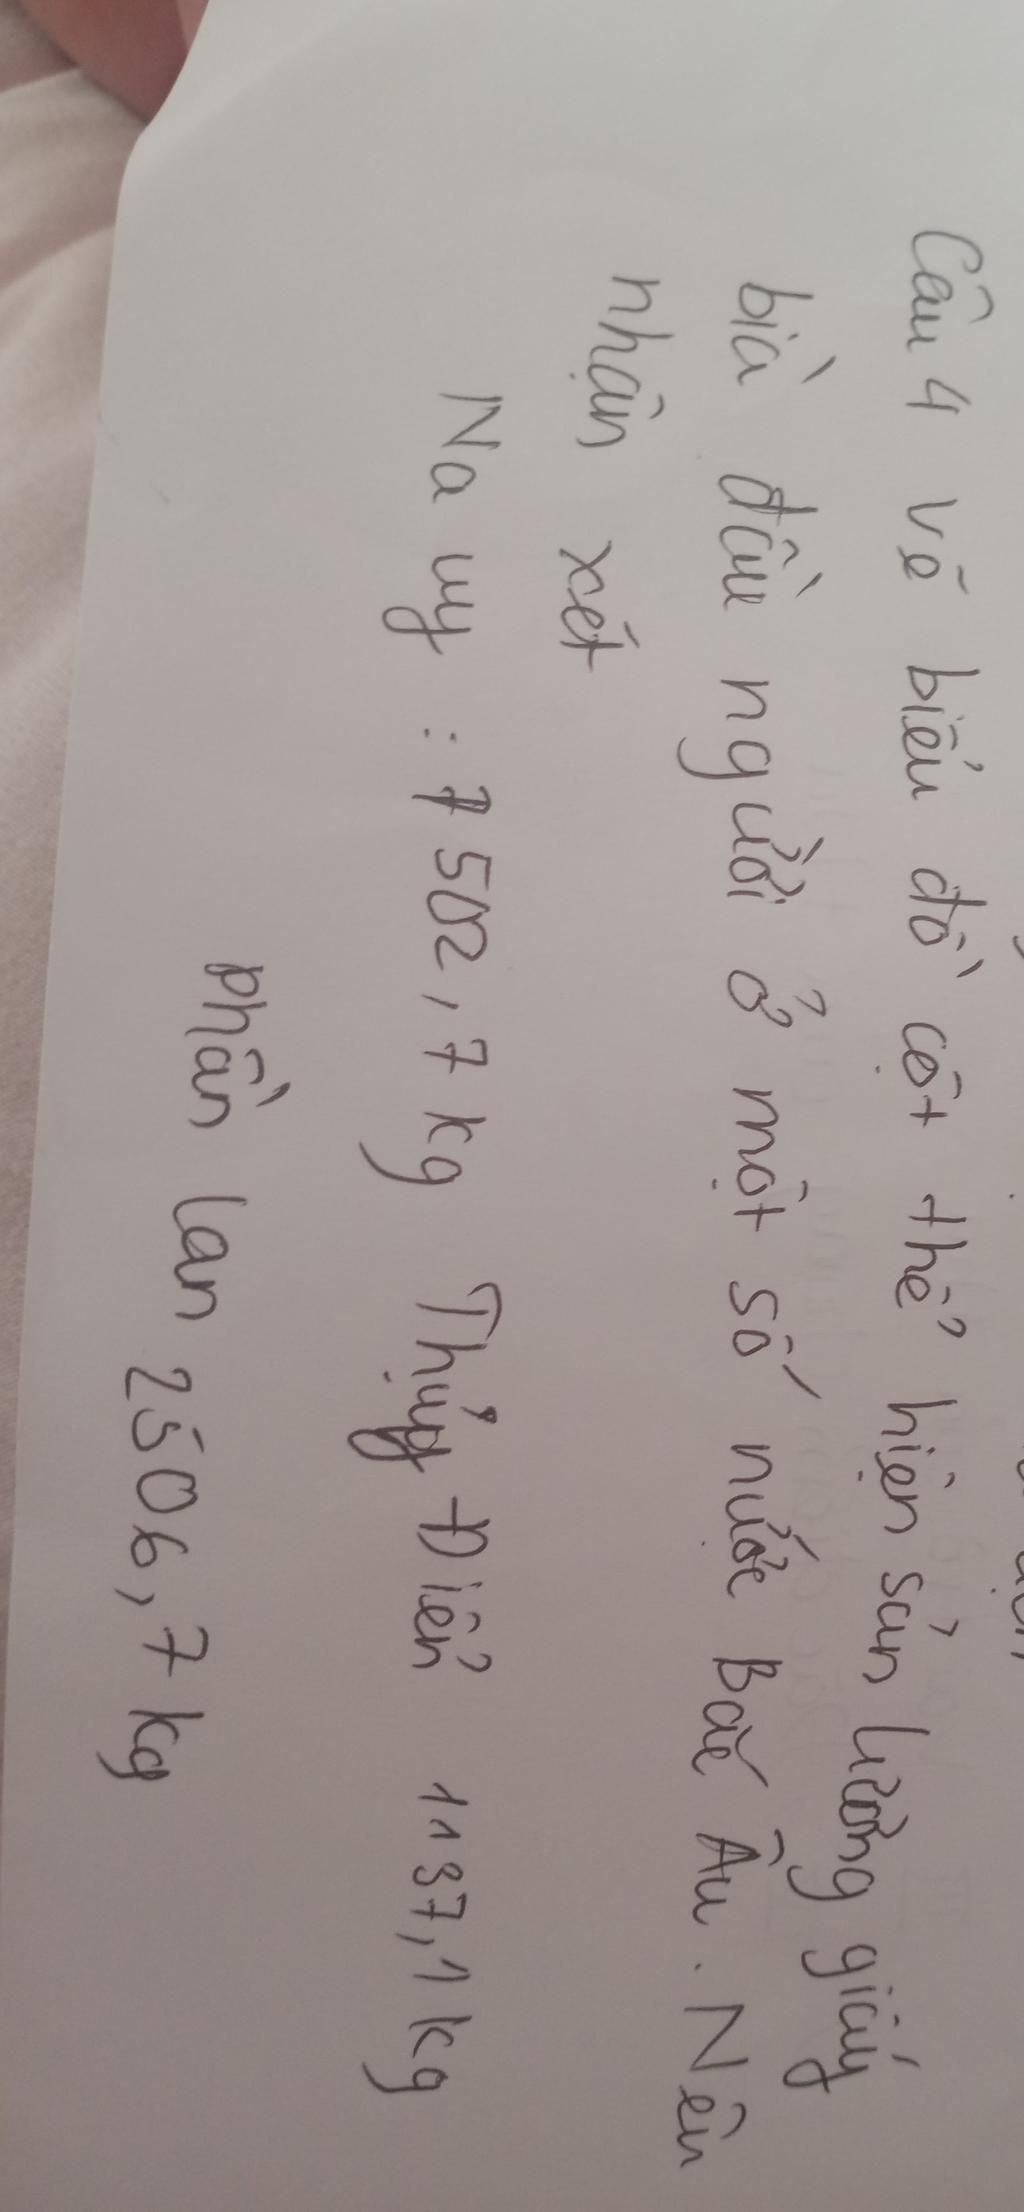 Câu 4 vẽ biểu đồ cột thể hiện sản lường giấy
bìa đầu người ở một số nước Bắc Âu. Nêu
nhận xét
Na uy : 7502,7 kg Thụy Điển 1137,1 kg
phần lan 2506,7 kg